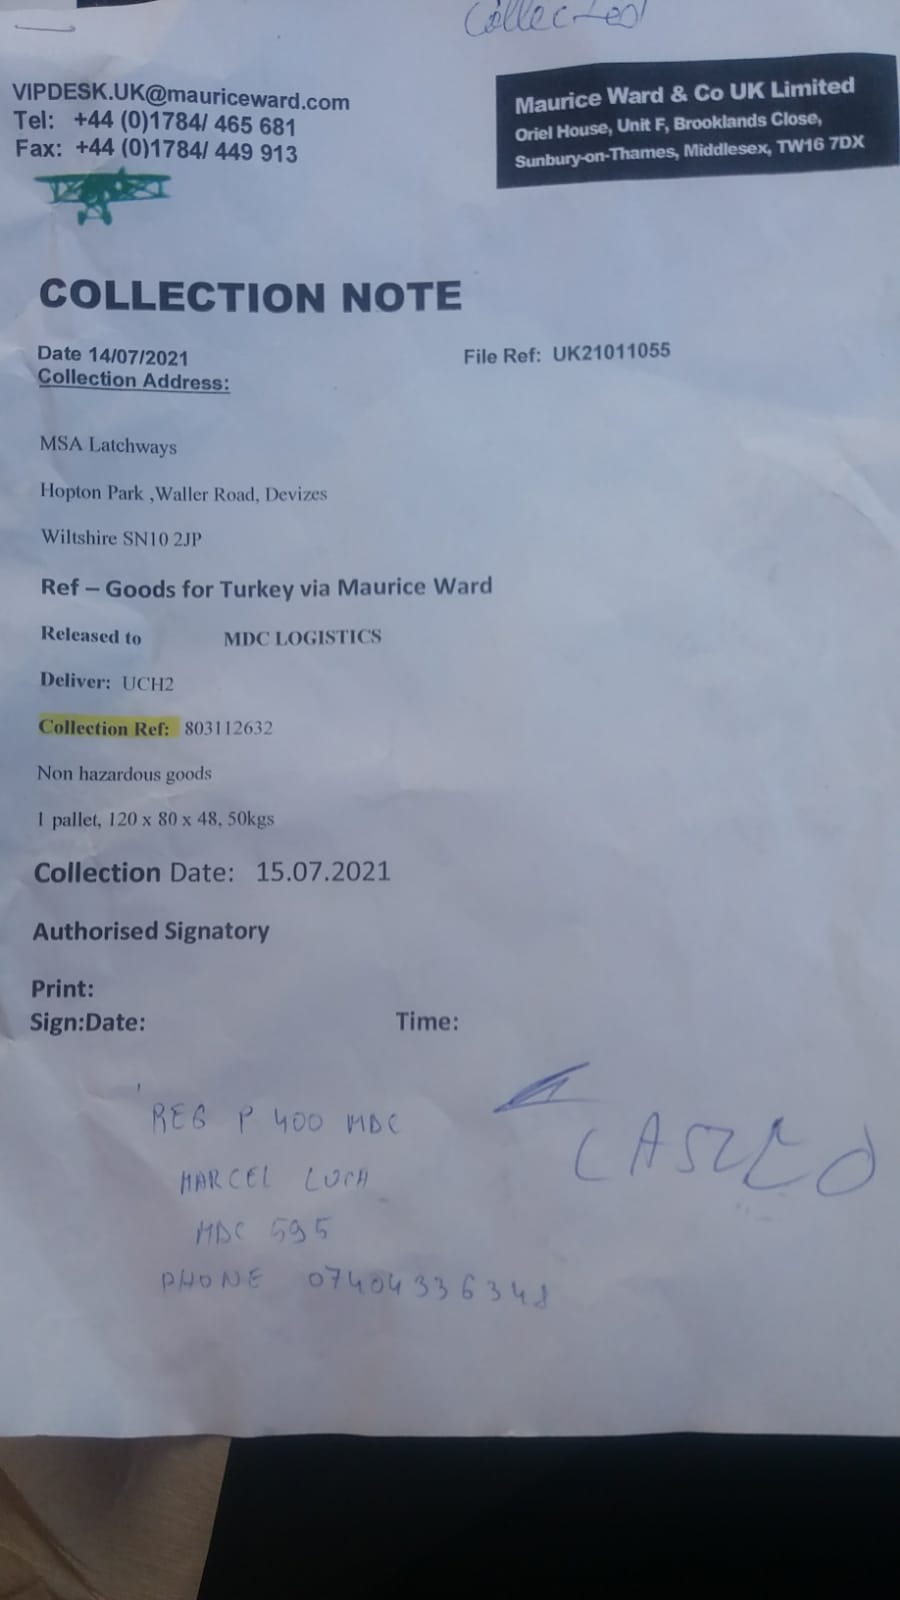 Collected
VIPDESK.UK@mauriceward.com
Tel: +44 (0)1784/ 465 681
Fax: +44 (0)1784/ 449 913
Maurice Ward & Co UK Limited
Oriel House, Unit F, Brooklands Close,
Sunbury-on-Thames, Middlesex, TW16 7DX
COLLECTION NOTE
Date 14/07/2021
File Ref: UK21011055
Collection Address:
MSA Latchways
Hopton Park ,Waller Road, Devizes
Wiltshire SN10 2JP
Ref – Goods for Turkey via Maurice Ward
Released to MDC LOGISTICS
Deliver: UCH2
Collection Ref: 803112632
Non hazardous goods
1 pallet, 120 x 80 x 48, 50kgs
Collection Date: 15.07.2021
Authorised Signatory
Print:
Sign:Date: Time:
REG P 400 MDC
MARCEL LUCA
MDC 595
PHONE 07404336348